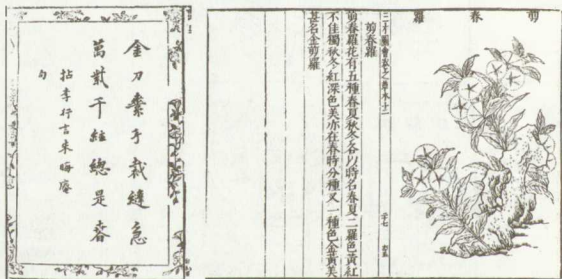 剪春羅
三才圖會
剪春羅
剪春羅花有五種春夏秋冬各以時名春夏二羅色黃紅
不佳獨秋冬紅深色美亦在春時分種又一種色金黃美
甚名金剪羅
金刀素手裁縫急
萬紫千紅總是春
拈李行言朱晦庵
句